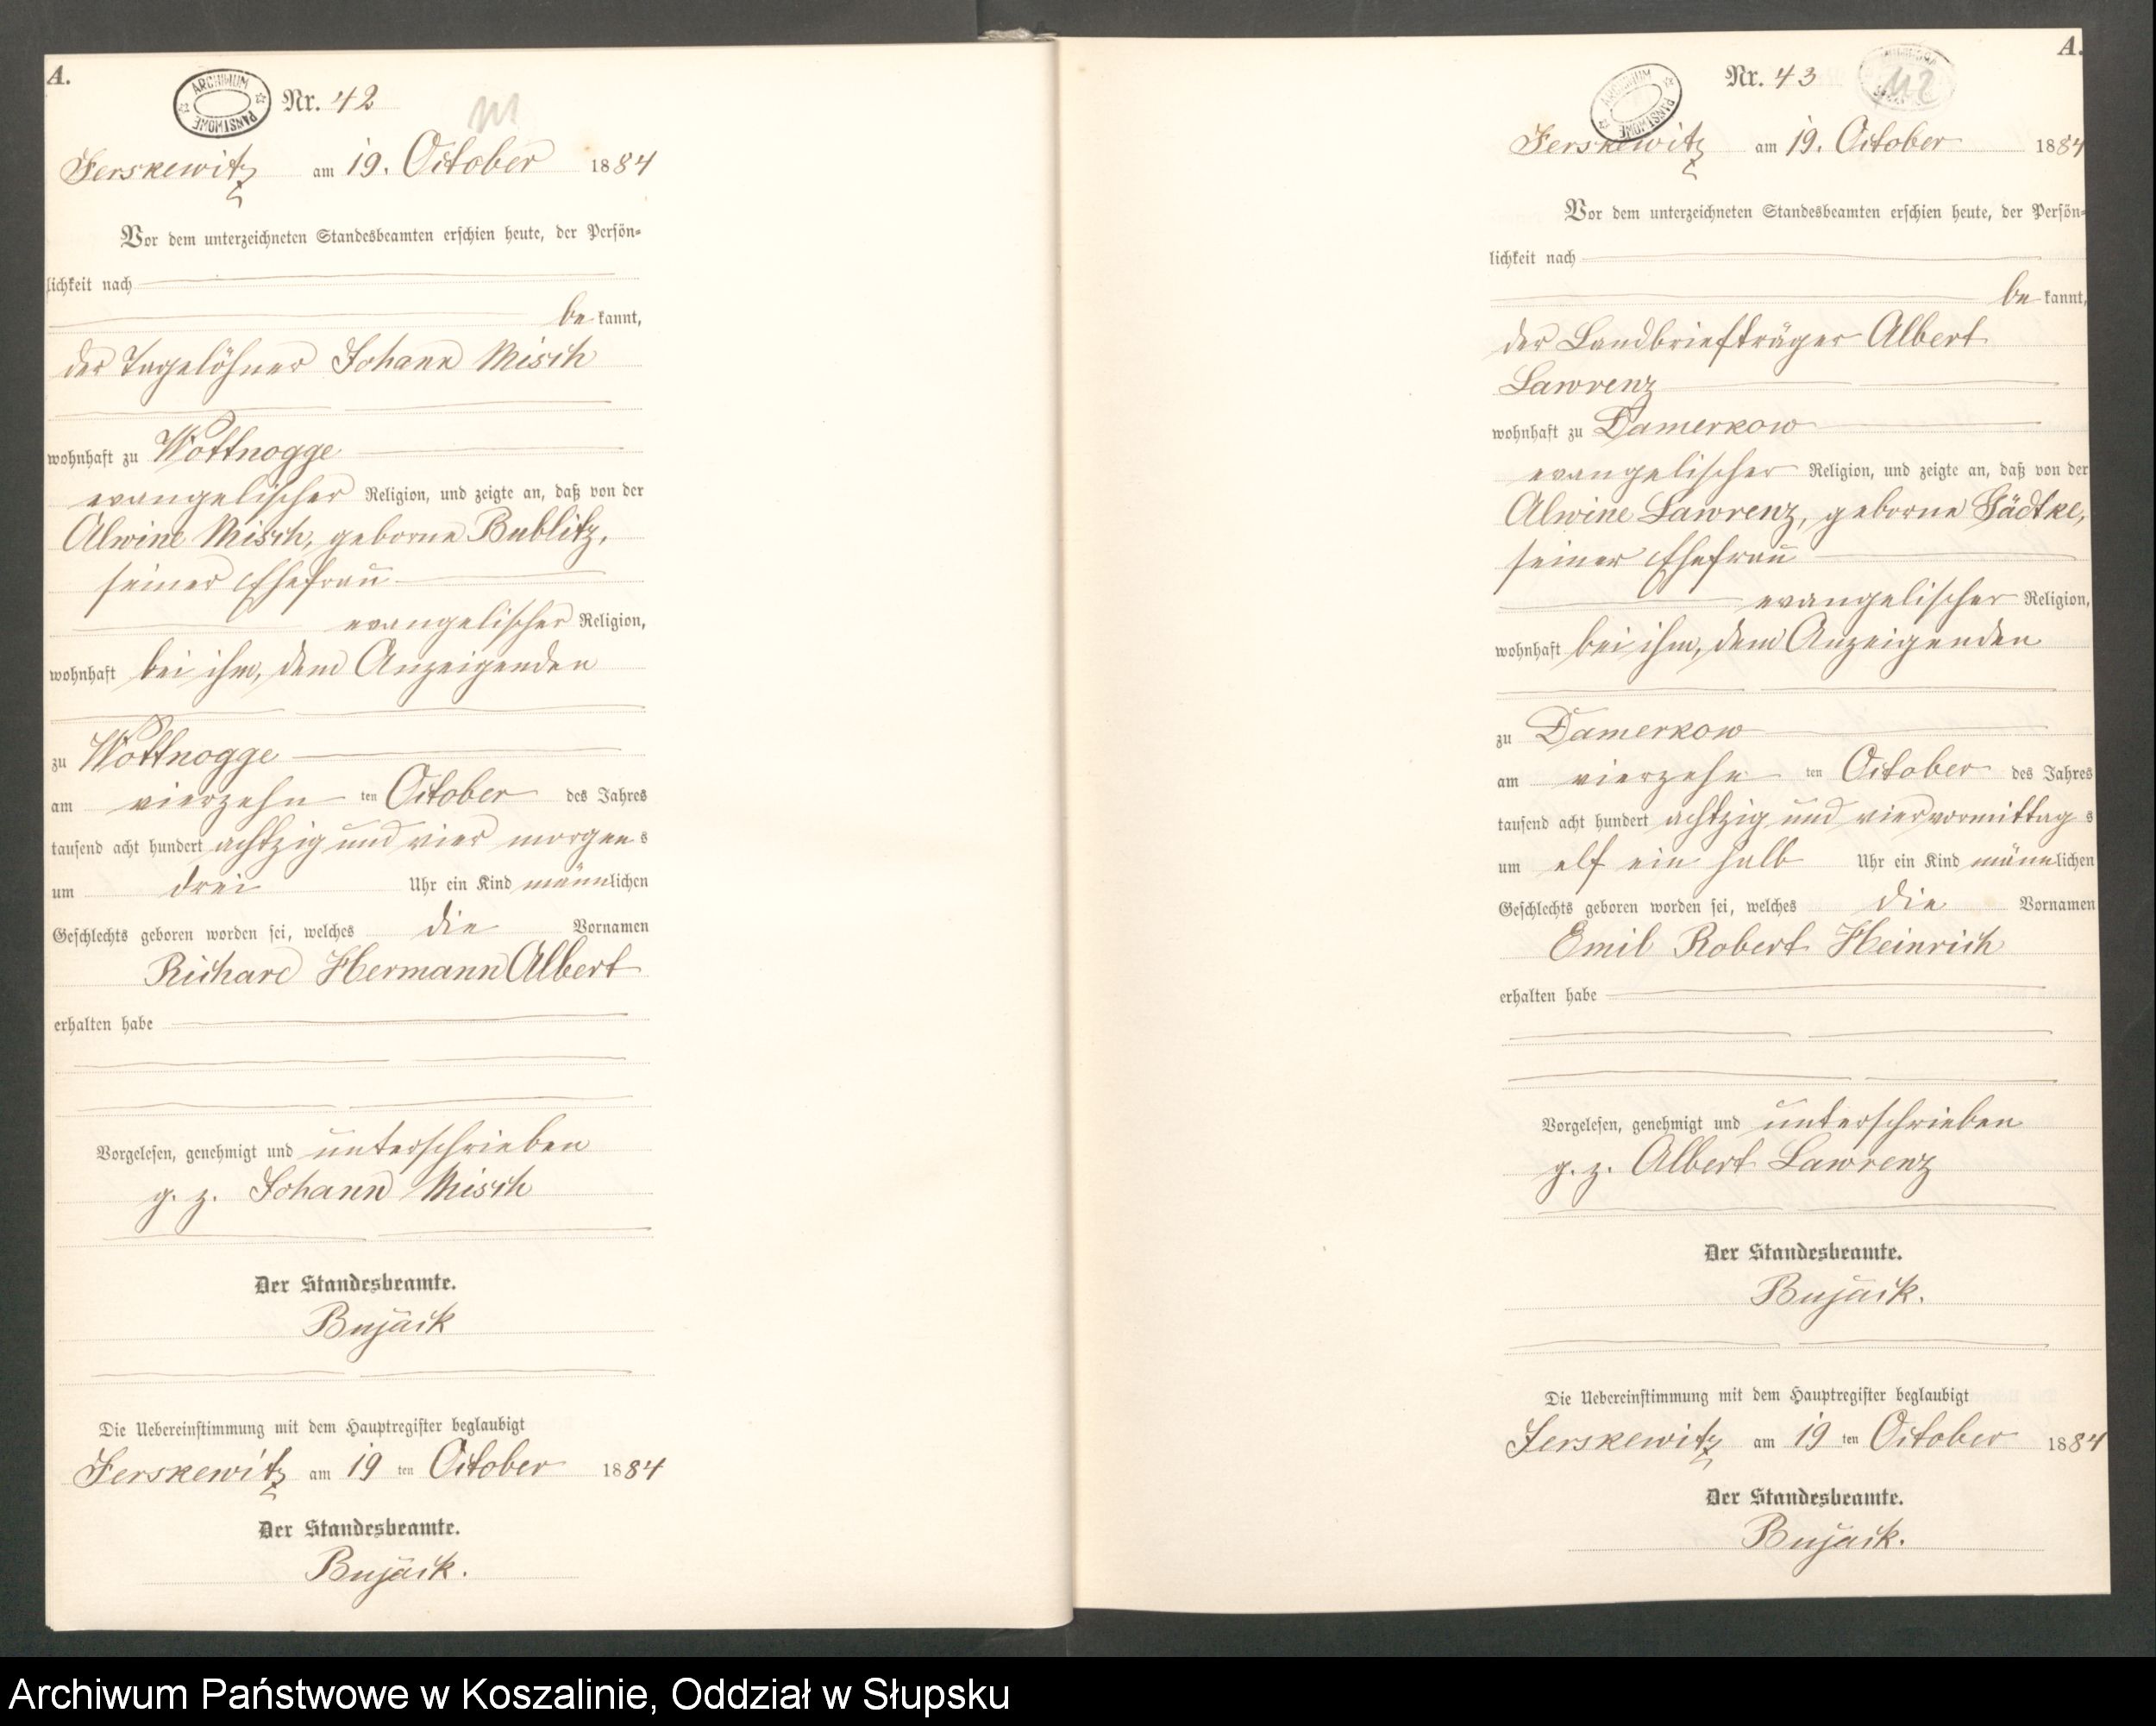 A.
ARCHIWUM PAŃSTWOWE
Nr. 42
Jerskewitz am 19. October 1884
Vor dem unterzeichneten Standesbeamten erschien heute, der Persön-
lichkeit nach
be kannt,
der Tagelöhner Johann Misch
wohnhaft zu Wottnogge
evangelischer Religion, und zeigte an, daß von der
Alwine Misch, geborne Bublitz,
seiner Ehefrau
evangelischer Religion,
wohnhaft bei ihm, dem Anzeigenden
zu Wottnogge
am vierzehn ten October des Jahres
tausend acht hundert achtzig und vier morgen s
um drei Uhr ein Kind männlichen
Geschlechts geboren worden sei, welches die Vornamen
Richard Hermann Albert
erhalten habe
Vorgelesen, genehmigt und unterschrieben
g. z. Johann Misch
Der Standesbeamte.
Bujack
Die Uebereinstimmung mit dem Hauptregister beglaubigt
Jerskewitz am 19 ten October 1884
Der Standesbeamte.
Bujack.
A.
ARCHIWUM PAŃSTWOWE
Nr. 43
Jerskewitz am 19. October 1884
Vor dem unterzeichneten Standesbeamten erschien heute, der Persön-
lichkeit nach
be kannt,
der Landbriefträger Albert
Lawrenz
wohnhaft zu Damerkow
evangelischer Religion, und zeigte an, daß von der
Alwine Lawrenz, geborne Gädtke,
seiner Ehefrau
evangelischer Religion,
wohnhaft bei ihm, dem Anzeigenden
zu Damerkow
am vierzehn ten October des Jahres
tausend acht hundert achtzig und vier vormittag s
um elf ein halb Uhr ein Kind männlichen
Geschlechts geboren worden sei, welches die Vornamen
Emil Robert Heinrich
erhalten habe
Vorgelesen, genehmigt und unterschrieben
g. z. Albert Lawrenz
Der Standesbeamte.
Bujack.
Die Uebereinstimmung mit dem Hauptregister beglaubigt
Jerskewitz am 19 ten October 1884
Der Standesbeamte.
Bujack.
Archiwum Państwowe w Koszalinie, Oddział w Słupsku